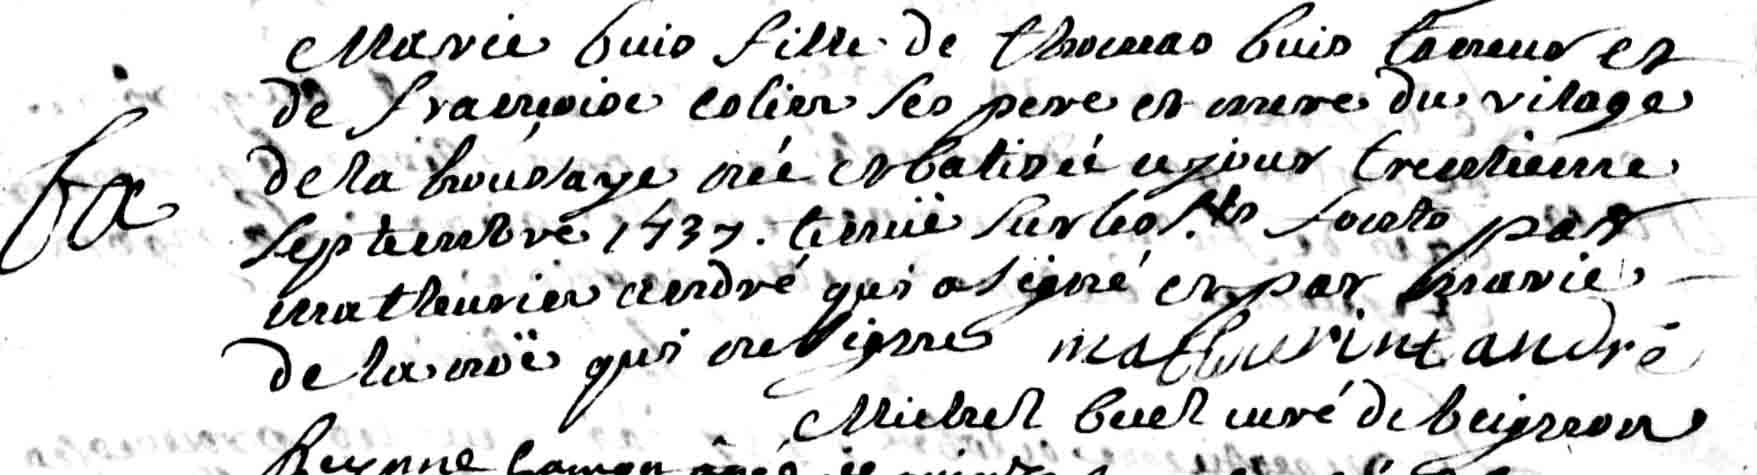 Marie buis fille de thomas buis taneur et
de francoise colier ses pere et mere du vilage
ba
de la boussaye née et batisée ce jour trentieme
septembre 1737. tenüe sur les Sts fonts par
mathurin andré qui a signé et par marie
de la noë qui ne signe mathurint andré
Michel buel curé de beignon